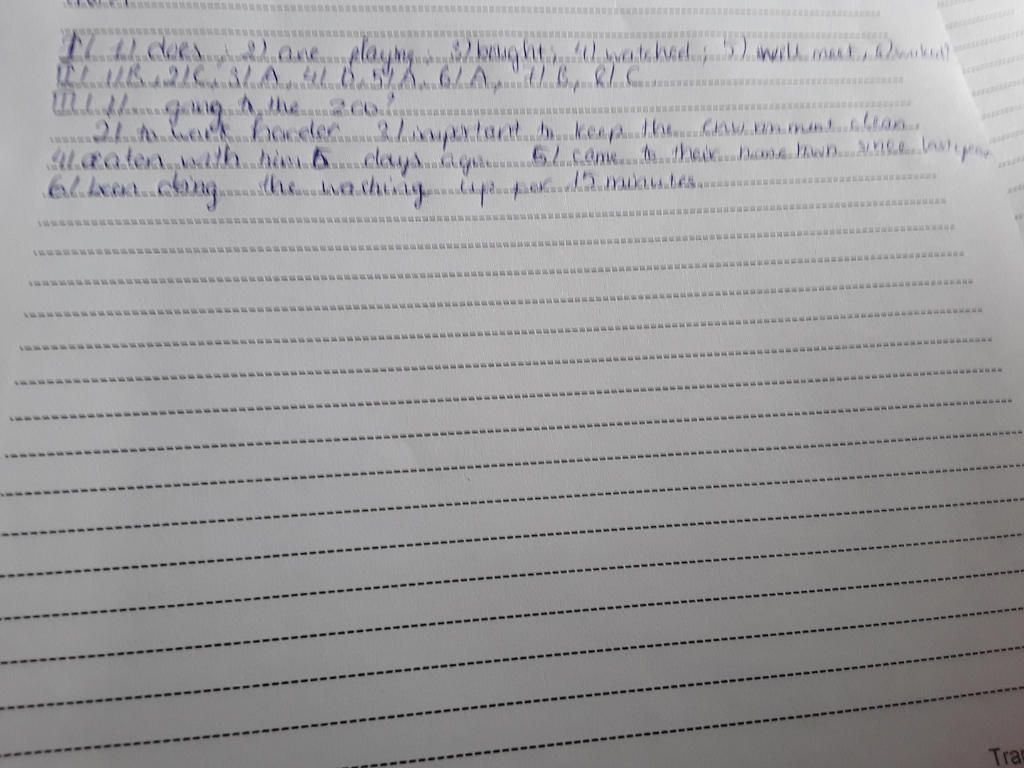 I/ 1/ does ; 2/ are playing ; 3/ bought ; 4/ watched ; 5/ will meet , 6/ worked
II/ 1/B , 2/C , 3/A , 4/D , 5/A , 6/A , 7/B , 8/C
III/ 1/ going to the zoo!
2/ to work harder 3/ important to keep the environment clean.
4/ eaten with him 5 days ago. 5/ come to their home town since last year
6/ been doing the washing up for 15 minutes.
Tra